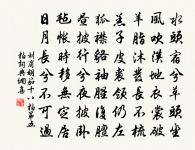 水頭宿兮草頭坐
風吹漢地衣裳破
羊脂沐髮長不梳
羔子皮裘領仍左
狐襟貉袖腥復膻
晝披行兮夜披臥
氈帳時移無定居
日月長兮不可過
劉商胡笳十八拍第五
拍詞典